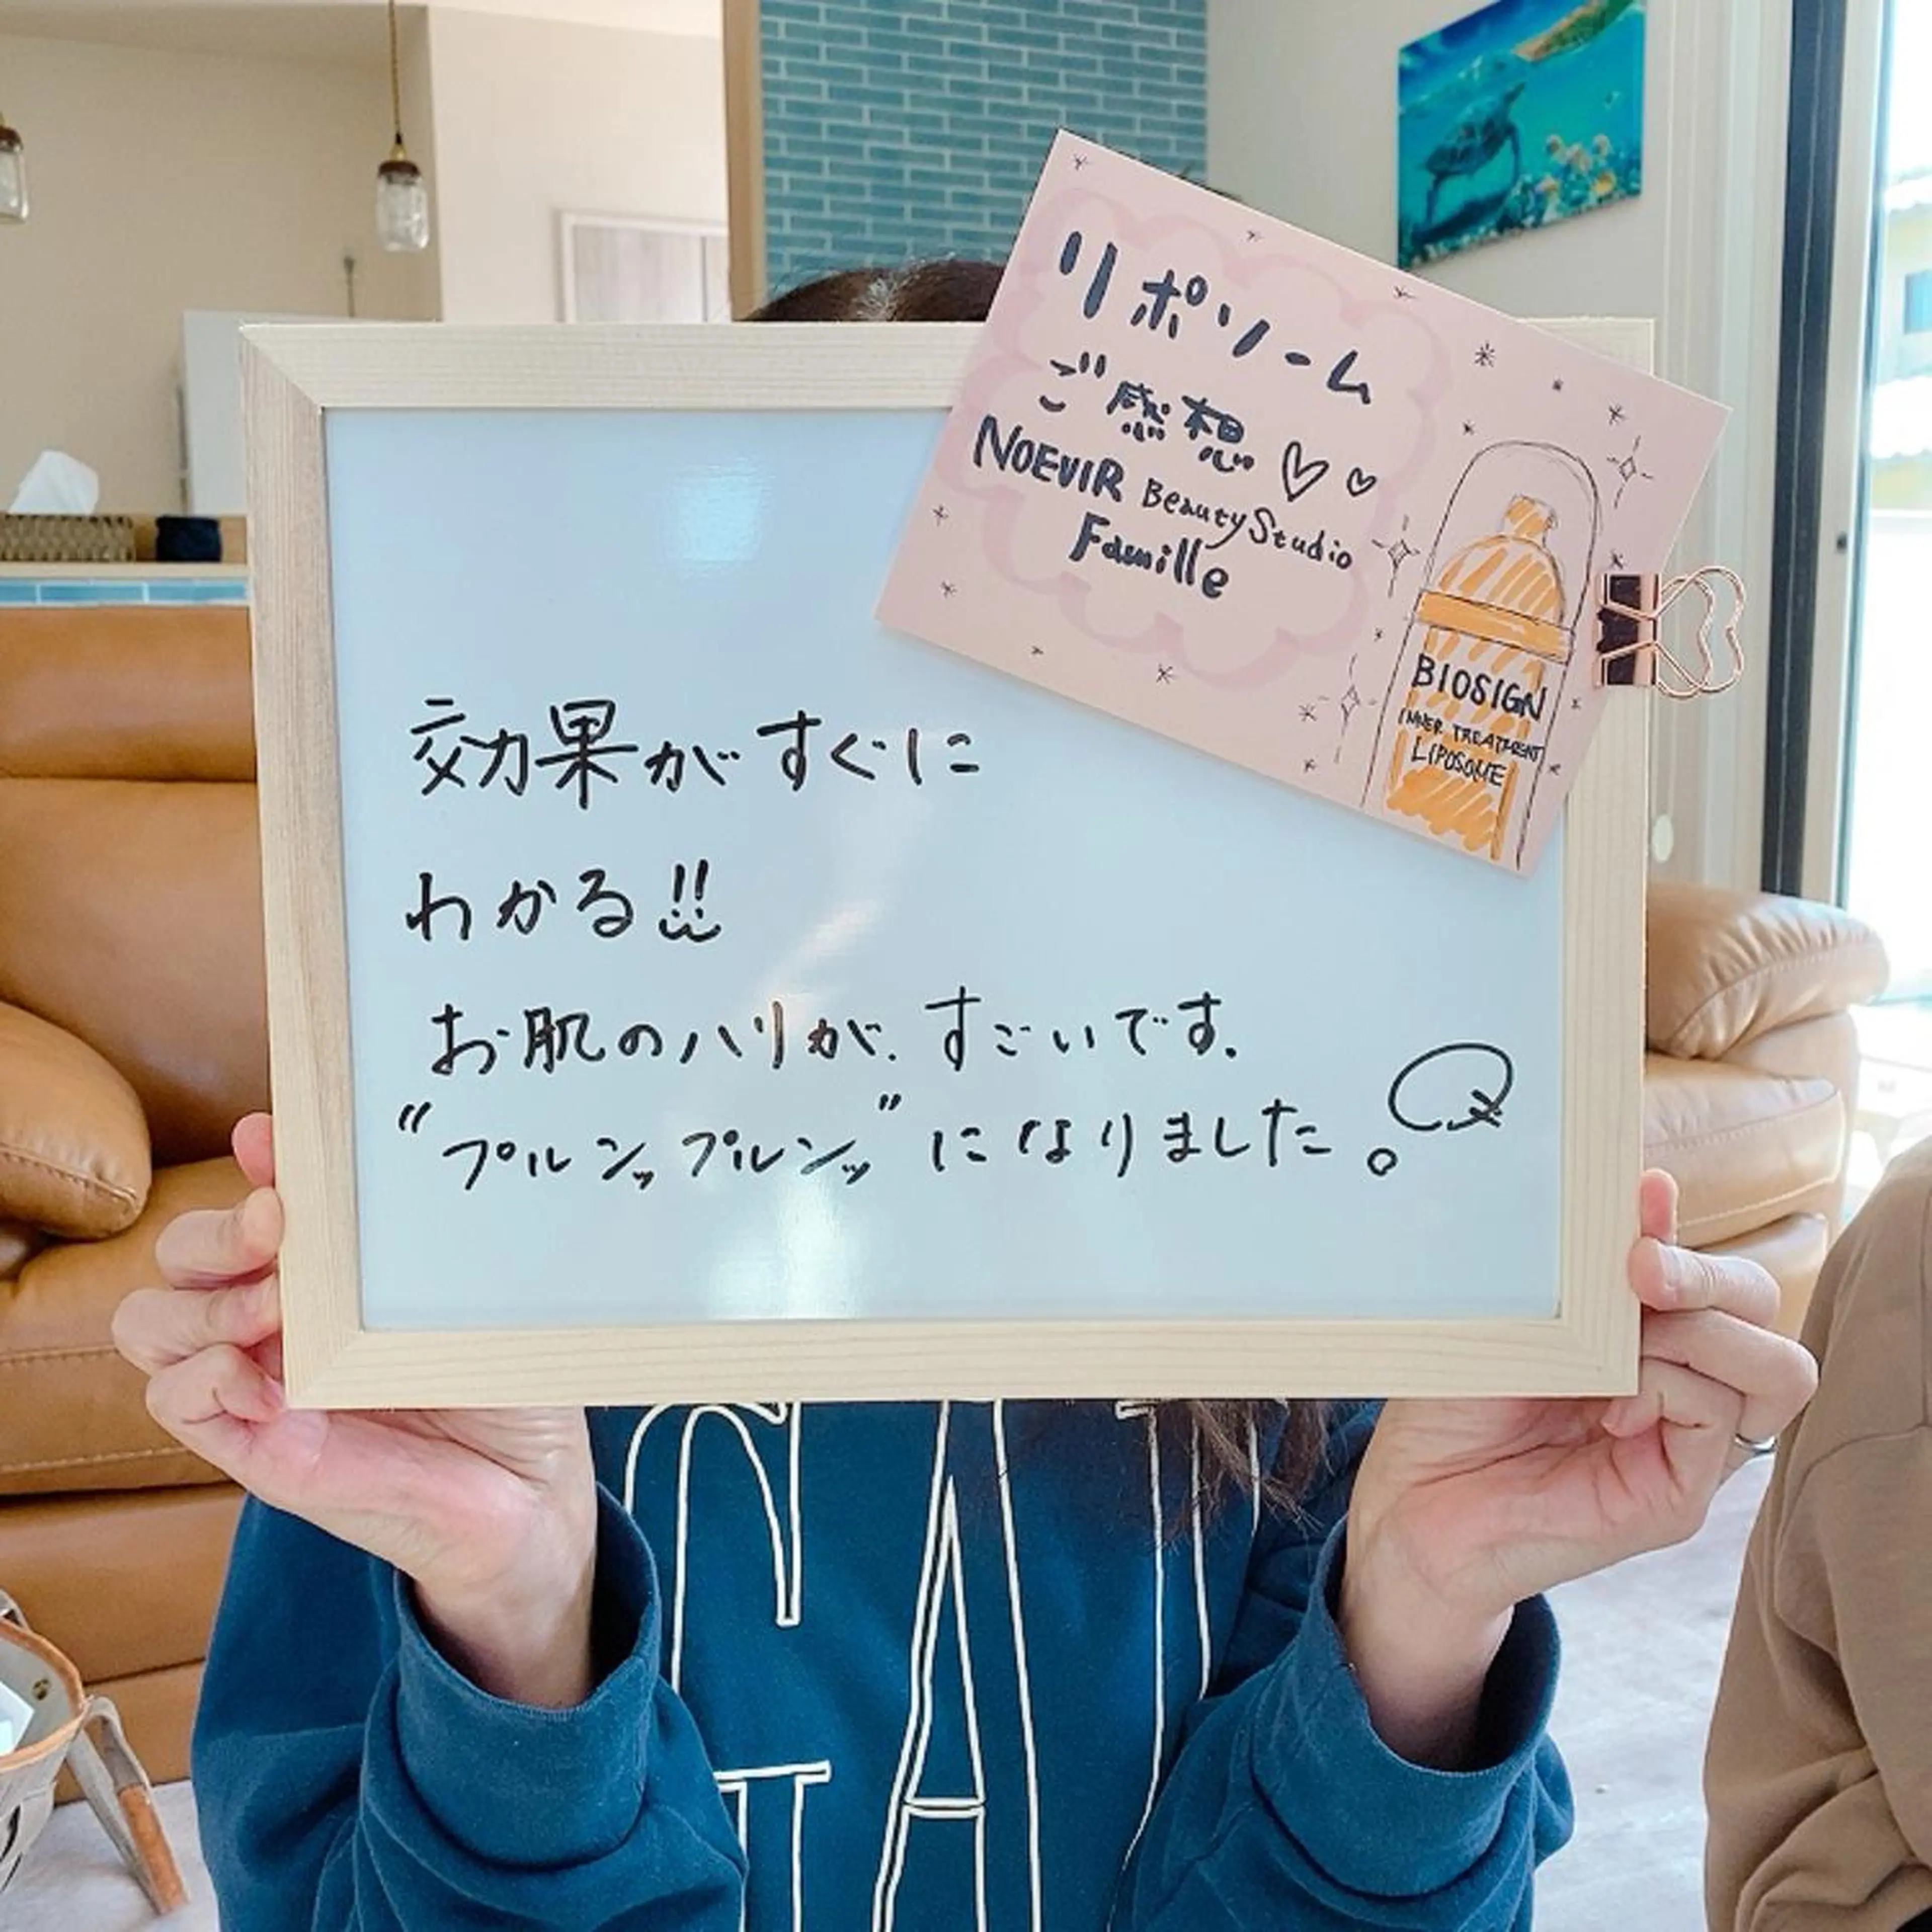 リポソーム
ご感想♡♡
NOEVIR Beauty Studio
Famille
BIOSIGN
INNER TREATMENT
LIPOSOME
効果がすぐに
わかる!!
お肌のハリが、すごいです。
"プルンップルンッ"になりました。